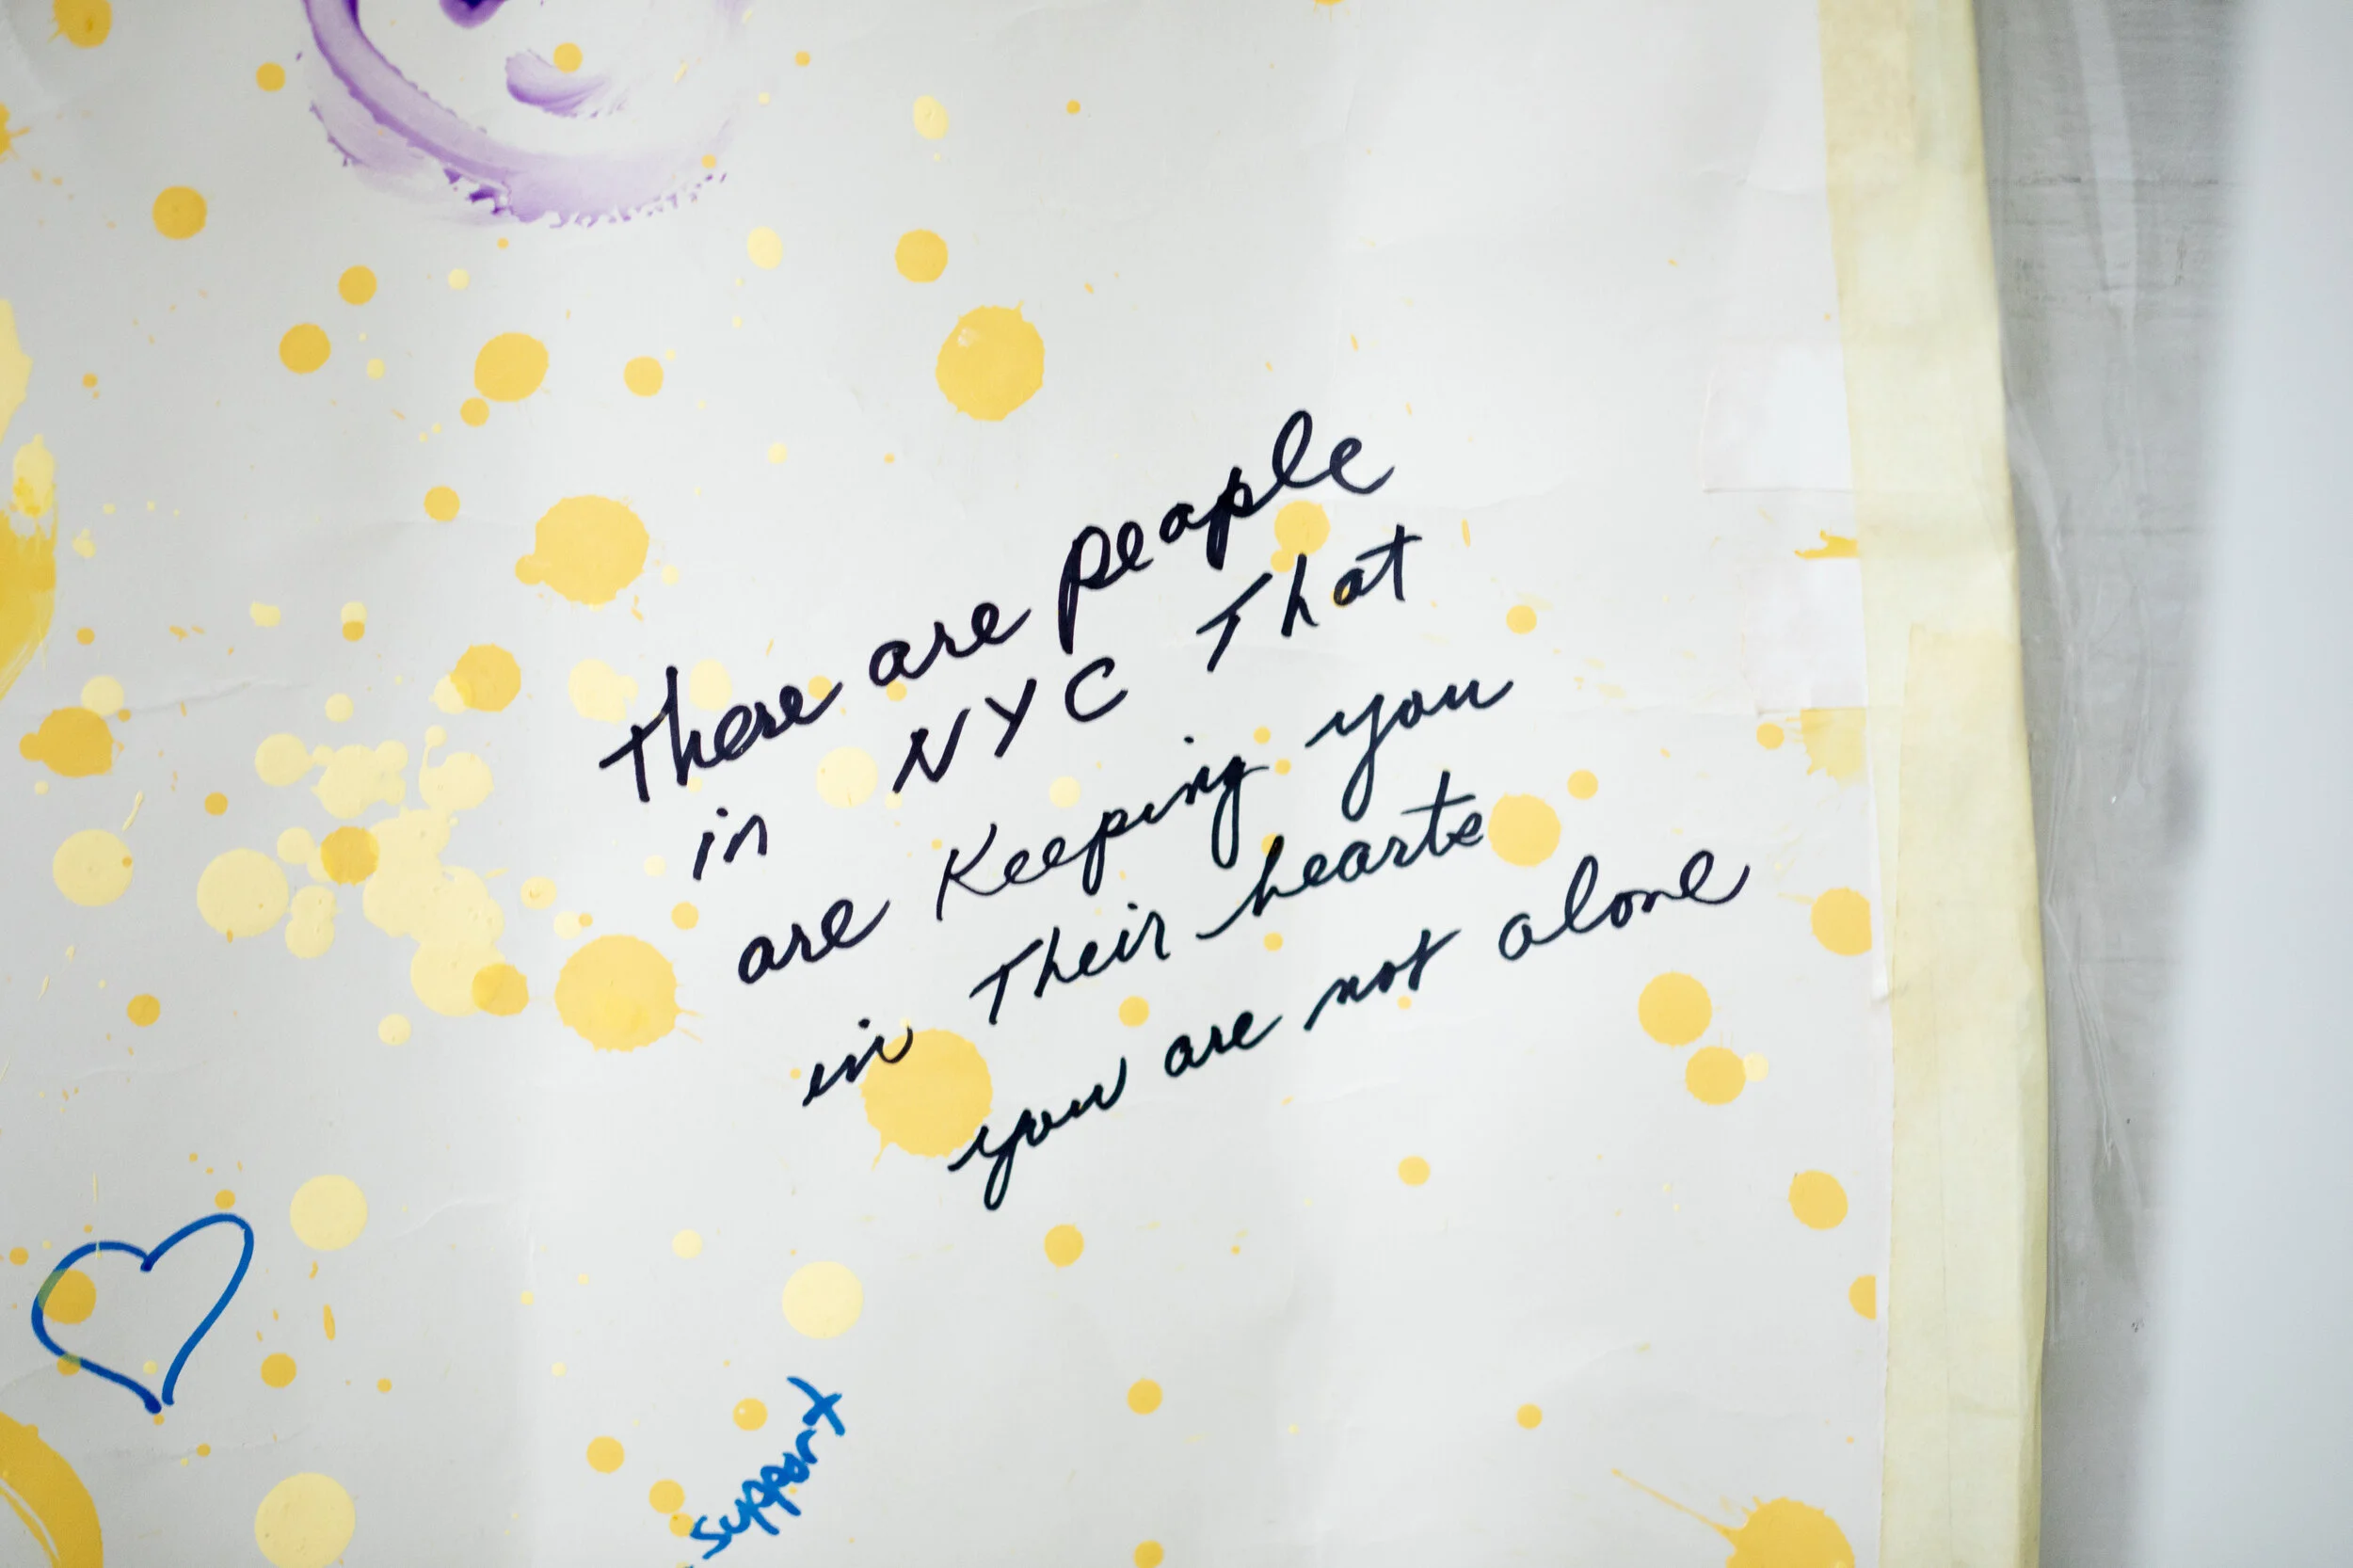 there are people
in NYC That
are Keeping you
in Their hearts
you are not alone
support